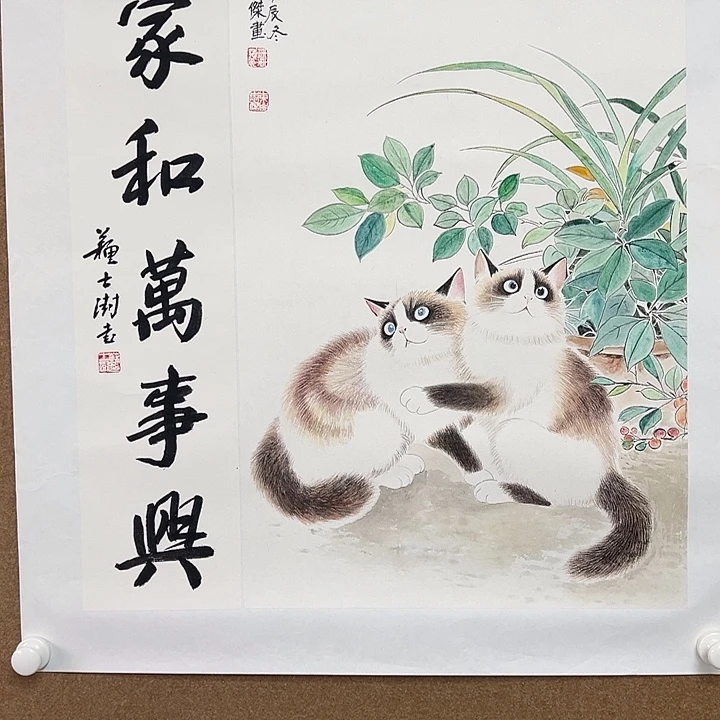 家和萬事興
蘇士澍書
辰冬
傑畫